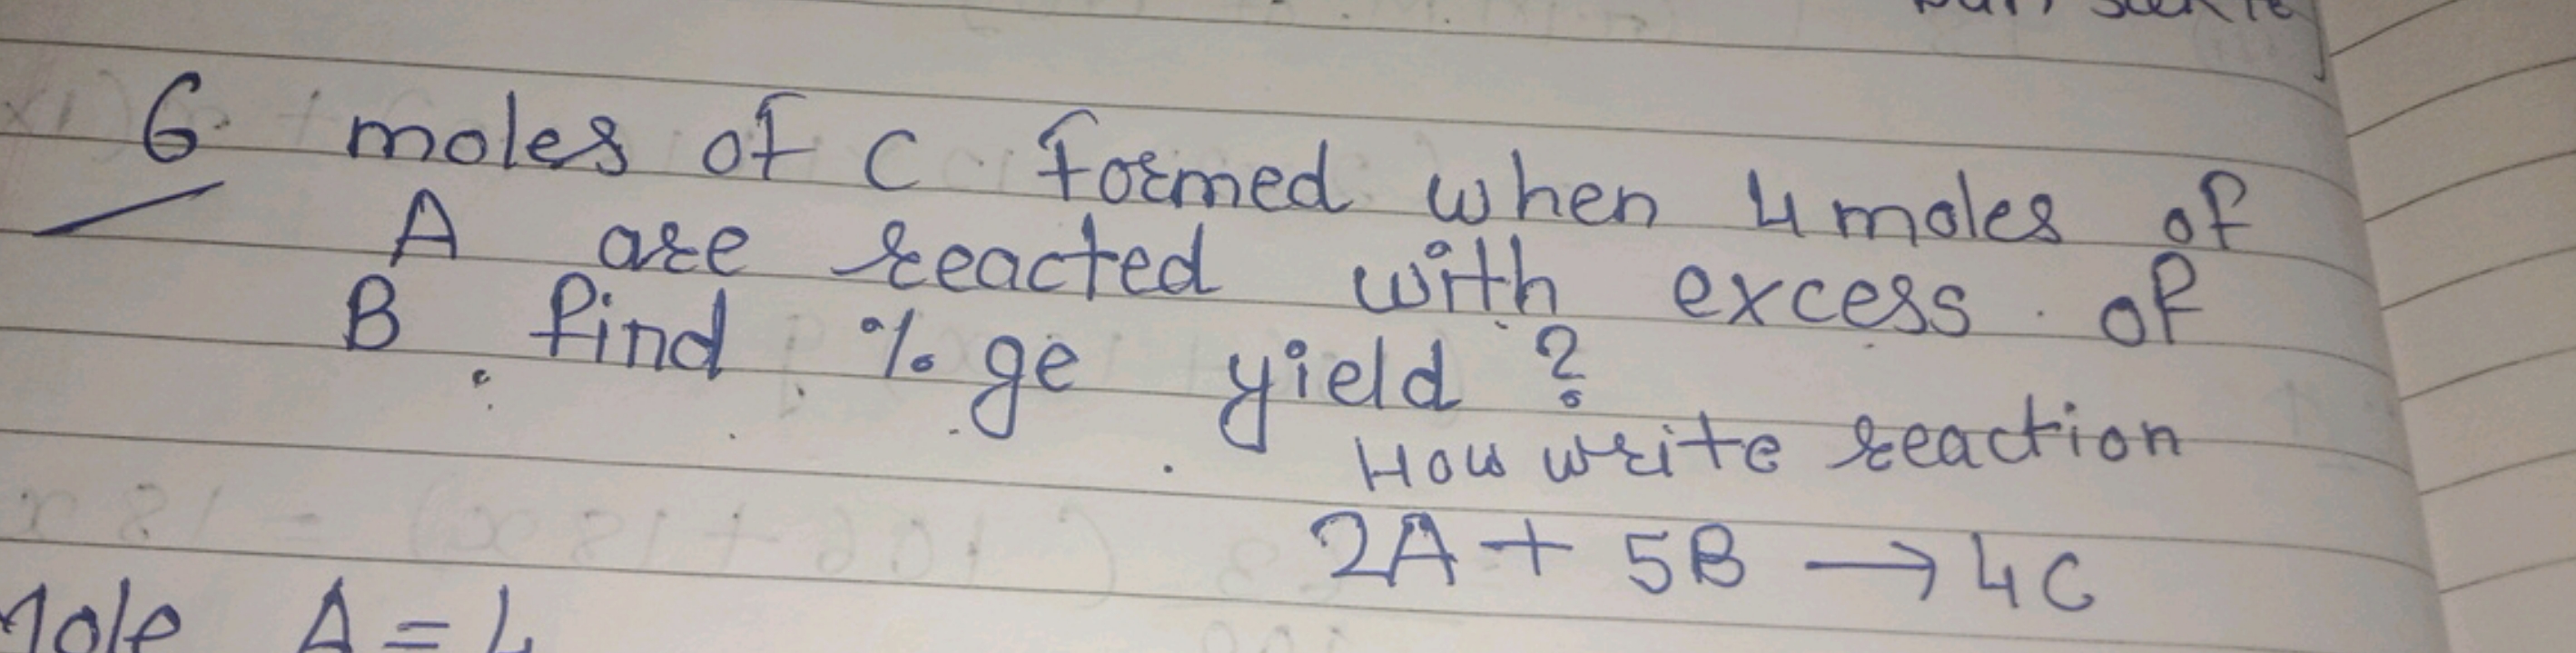 6 moles of C formed when 4 moles of
A are reacted with excess of
B find %ge yield ?
How write reaction
2A + 5B → 4C
Mole A = 4